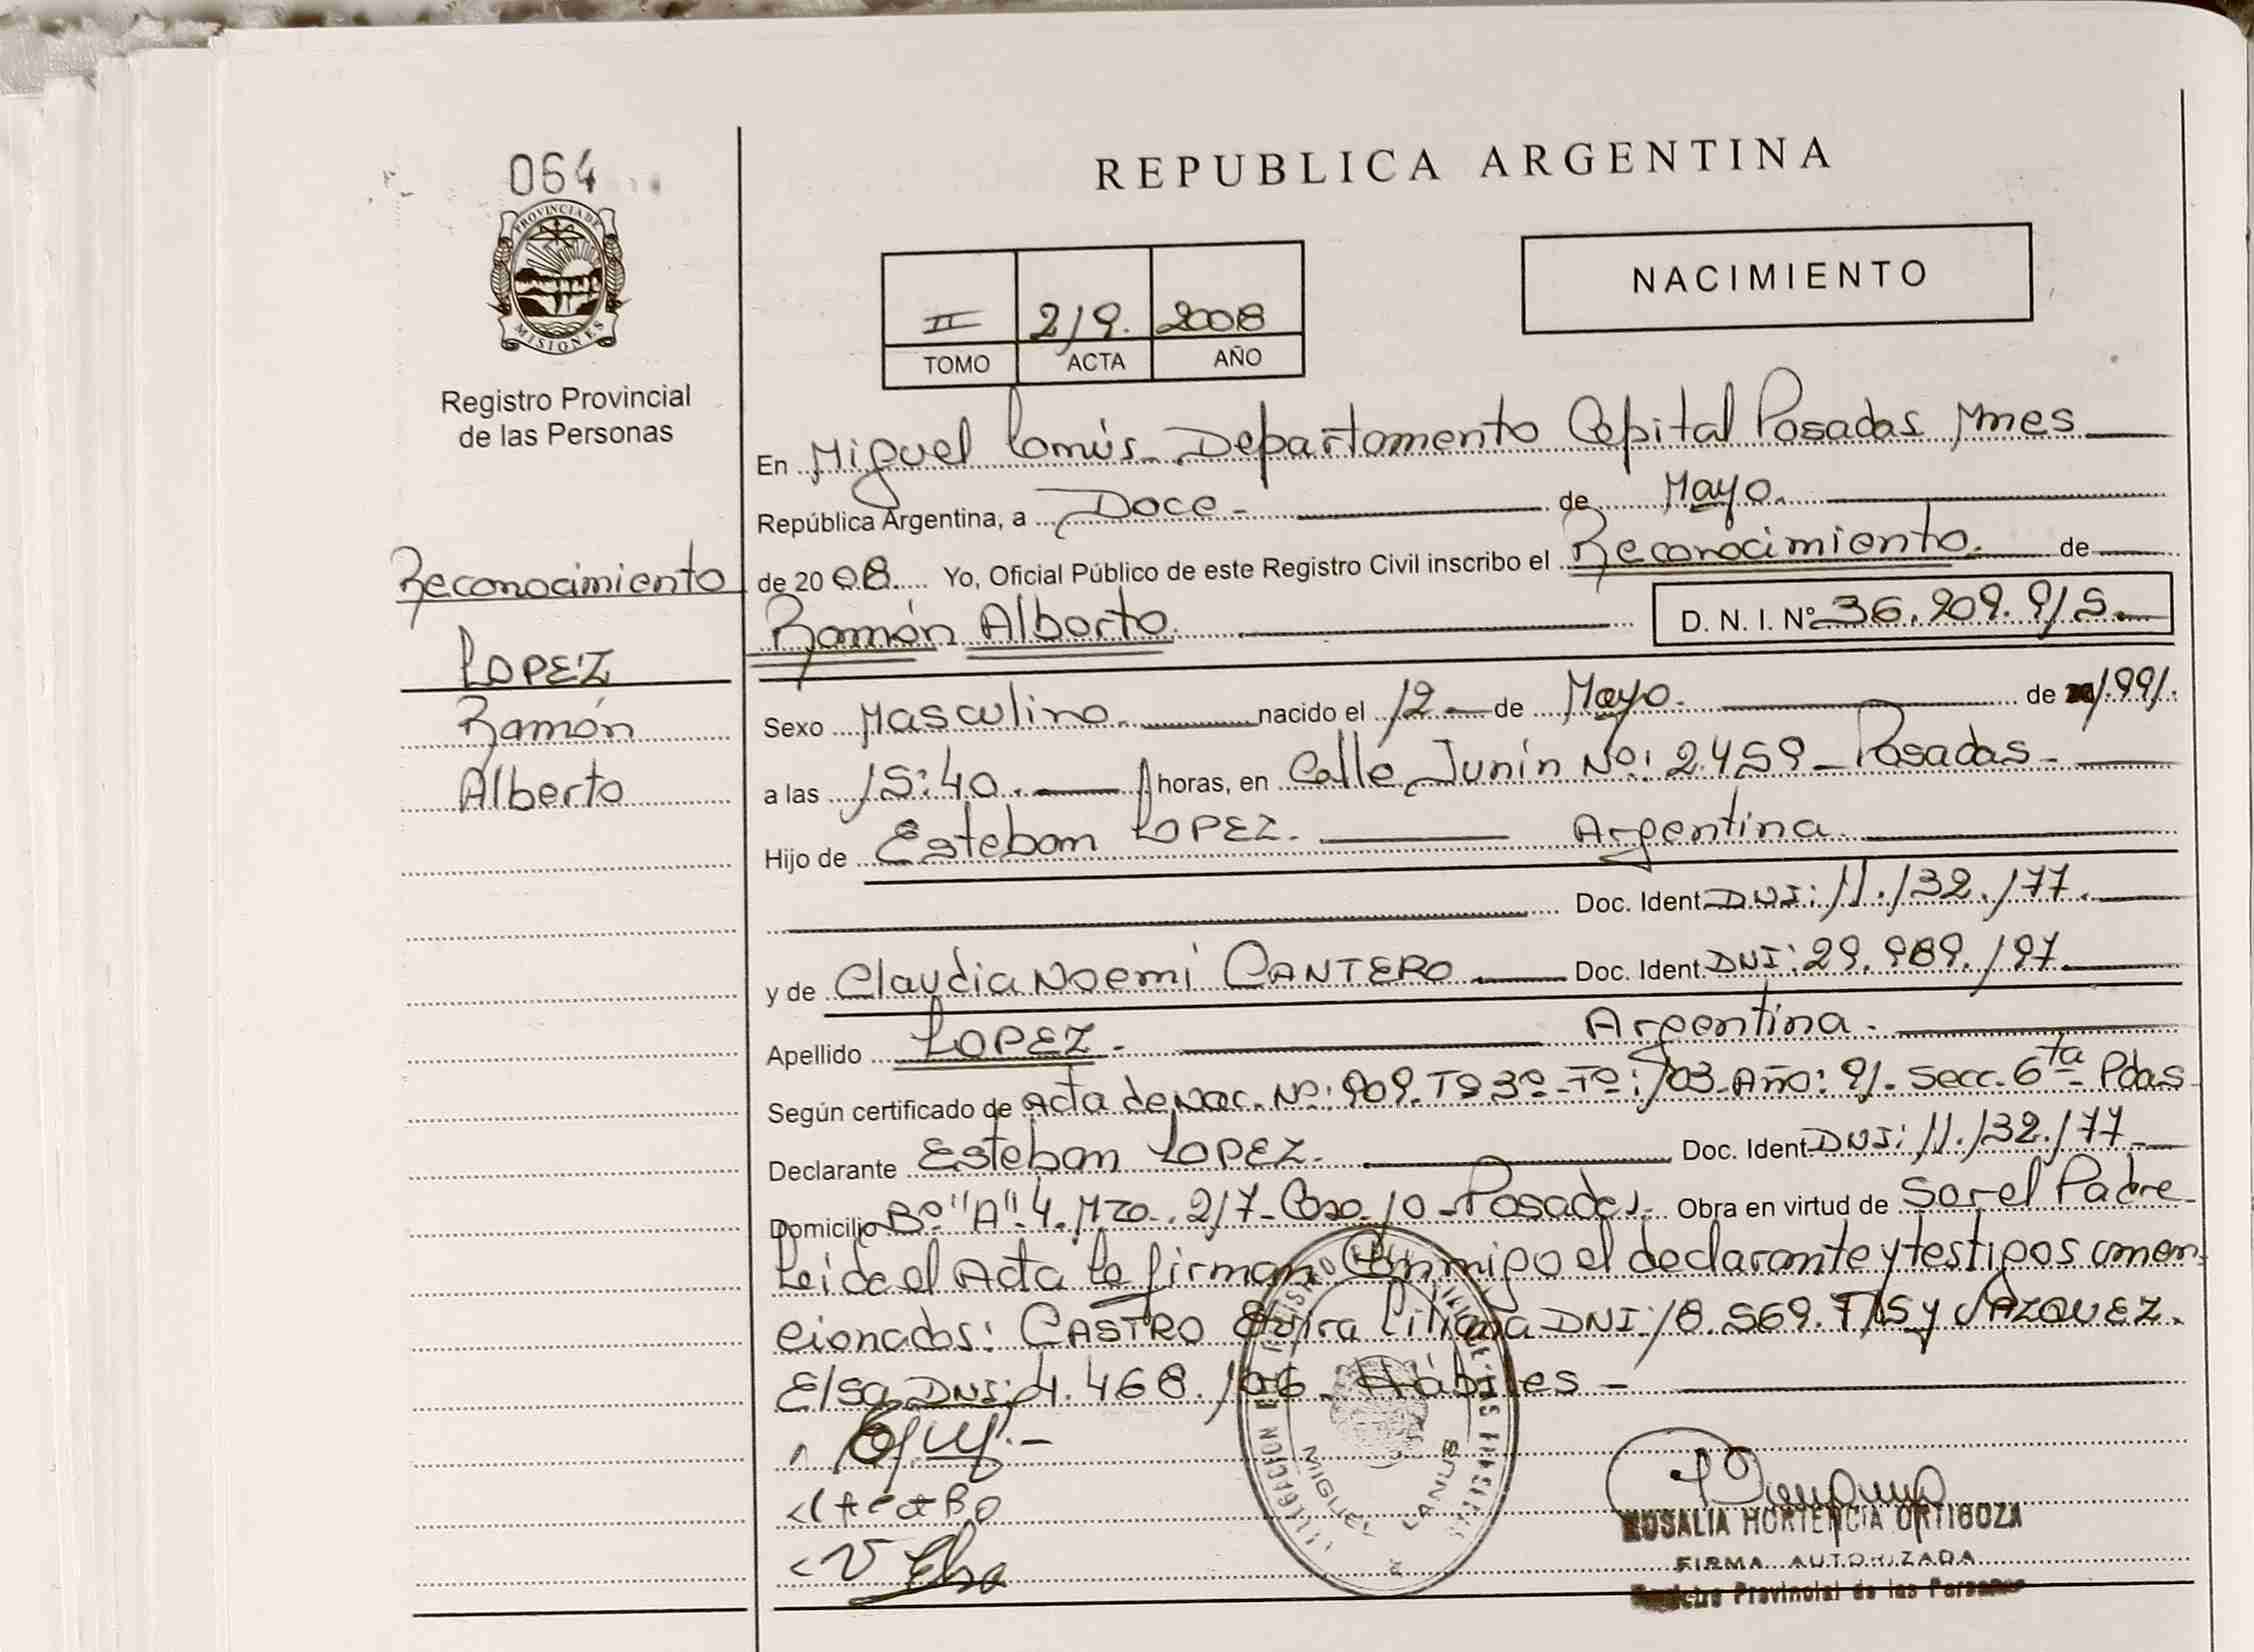 064
PROVINCIA DE
MISIONES
Registro Provincial
de las Personas
Reconocimiento
LOPEZ
Ramón
Alberto
REPUBLICA ARGENTINA
NACIMIENTO
II 219. 2008
TOMO ACTA AÑO
En Miguel Lanús Departamento Capital Posadas Mnes
República Argentina, a Doce - de Mayo.
de 2008. Yo, Oficial Público de este Registro Civil inscribo el Reconocimiento. de
Ramón Alberto. D. N. I. Nº 36.909.915.
Sexo Masculino. nacido el 12 de Mayo. de 1.991.
a las 15:40. horas, en Calle Junín Nº: 2459 - Posadas -
Hijo de Esteban LOPEZ. Argentina.
Doc. Ident. DNI: 11.132.177.
y de Claudia Noemí CANTERO Doc. Ident. DNI: 29.989.197.
Apellido LOPEZ. Argentina.
Según certificado de Acta de Nac. Nº: 909. Tº 3º Fº: 103 Año: 91. Secc. 6ta Pdas
Declarante Esteban LOPEZ. Doc. Ident. DNI: 11.132.177
Domicilio Bº "A" 4. Mza. 217 - Casa 10 - Posadas. Obra en virtud de Ser el Padre
Leída el Acta la firman conmigo el declarante y testigos amen-
cionados: CASTRO Liliana DNI: 18.569.715 y VAZQUEZ.
Elsa DNI: 4.468.106. Hábiles -
MIGUEL LANUS
ROSALIA HORTENCIA ORTIGOZA
FIRMA AUTORIZADA
Registro Provincial de las Personas